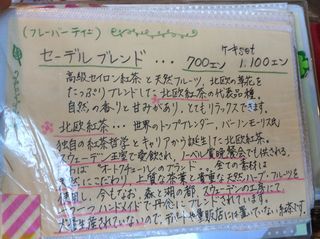 (フレーバーティー)
セーデルブレンド・・・ 700エン ケーキset 1,100エン
高級セイロン紅茶と天然フルーツ、北欧の草花を
たっぷりブレンドした北欧紅茶の代表品種。
自然の香りと甘みがあり、とてもリラックスできます。
北欧紅茶・・・世界のトップブレンダー、バーノン・モーリス氏
独自の紅茶哲学とキャリアから誕生した北欧紅茶。
スウェーデン王室で愛飲され、ノーベル賞晩餐会でも供される
"オートクチュール"のブランド 全ての素材は
にこだわり、上質な茶葉と貴重な天然ハーブ・フルーツを
使用し、今もなお、森と湖の都、スウェーデンの工房にて
一つ一つハンドメイドで丹念にブレンドされています。
大量生産されていないので、デパートや量販店には置いていない紅茶です。